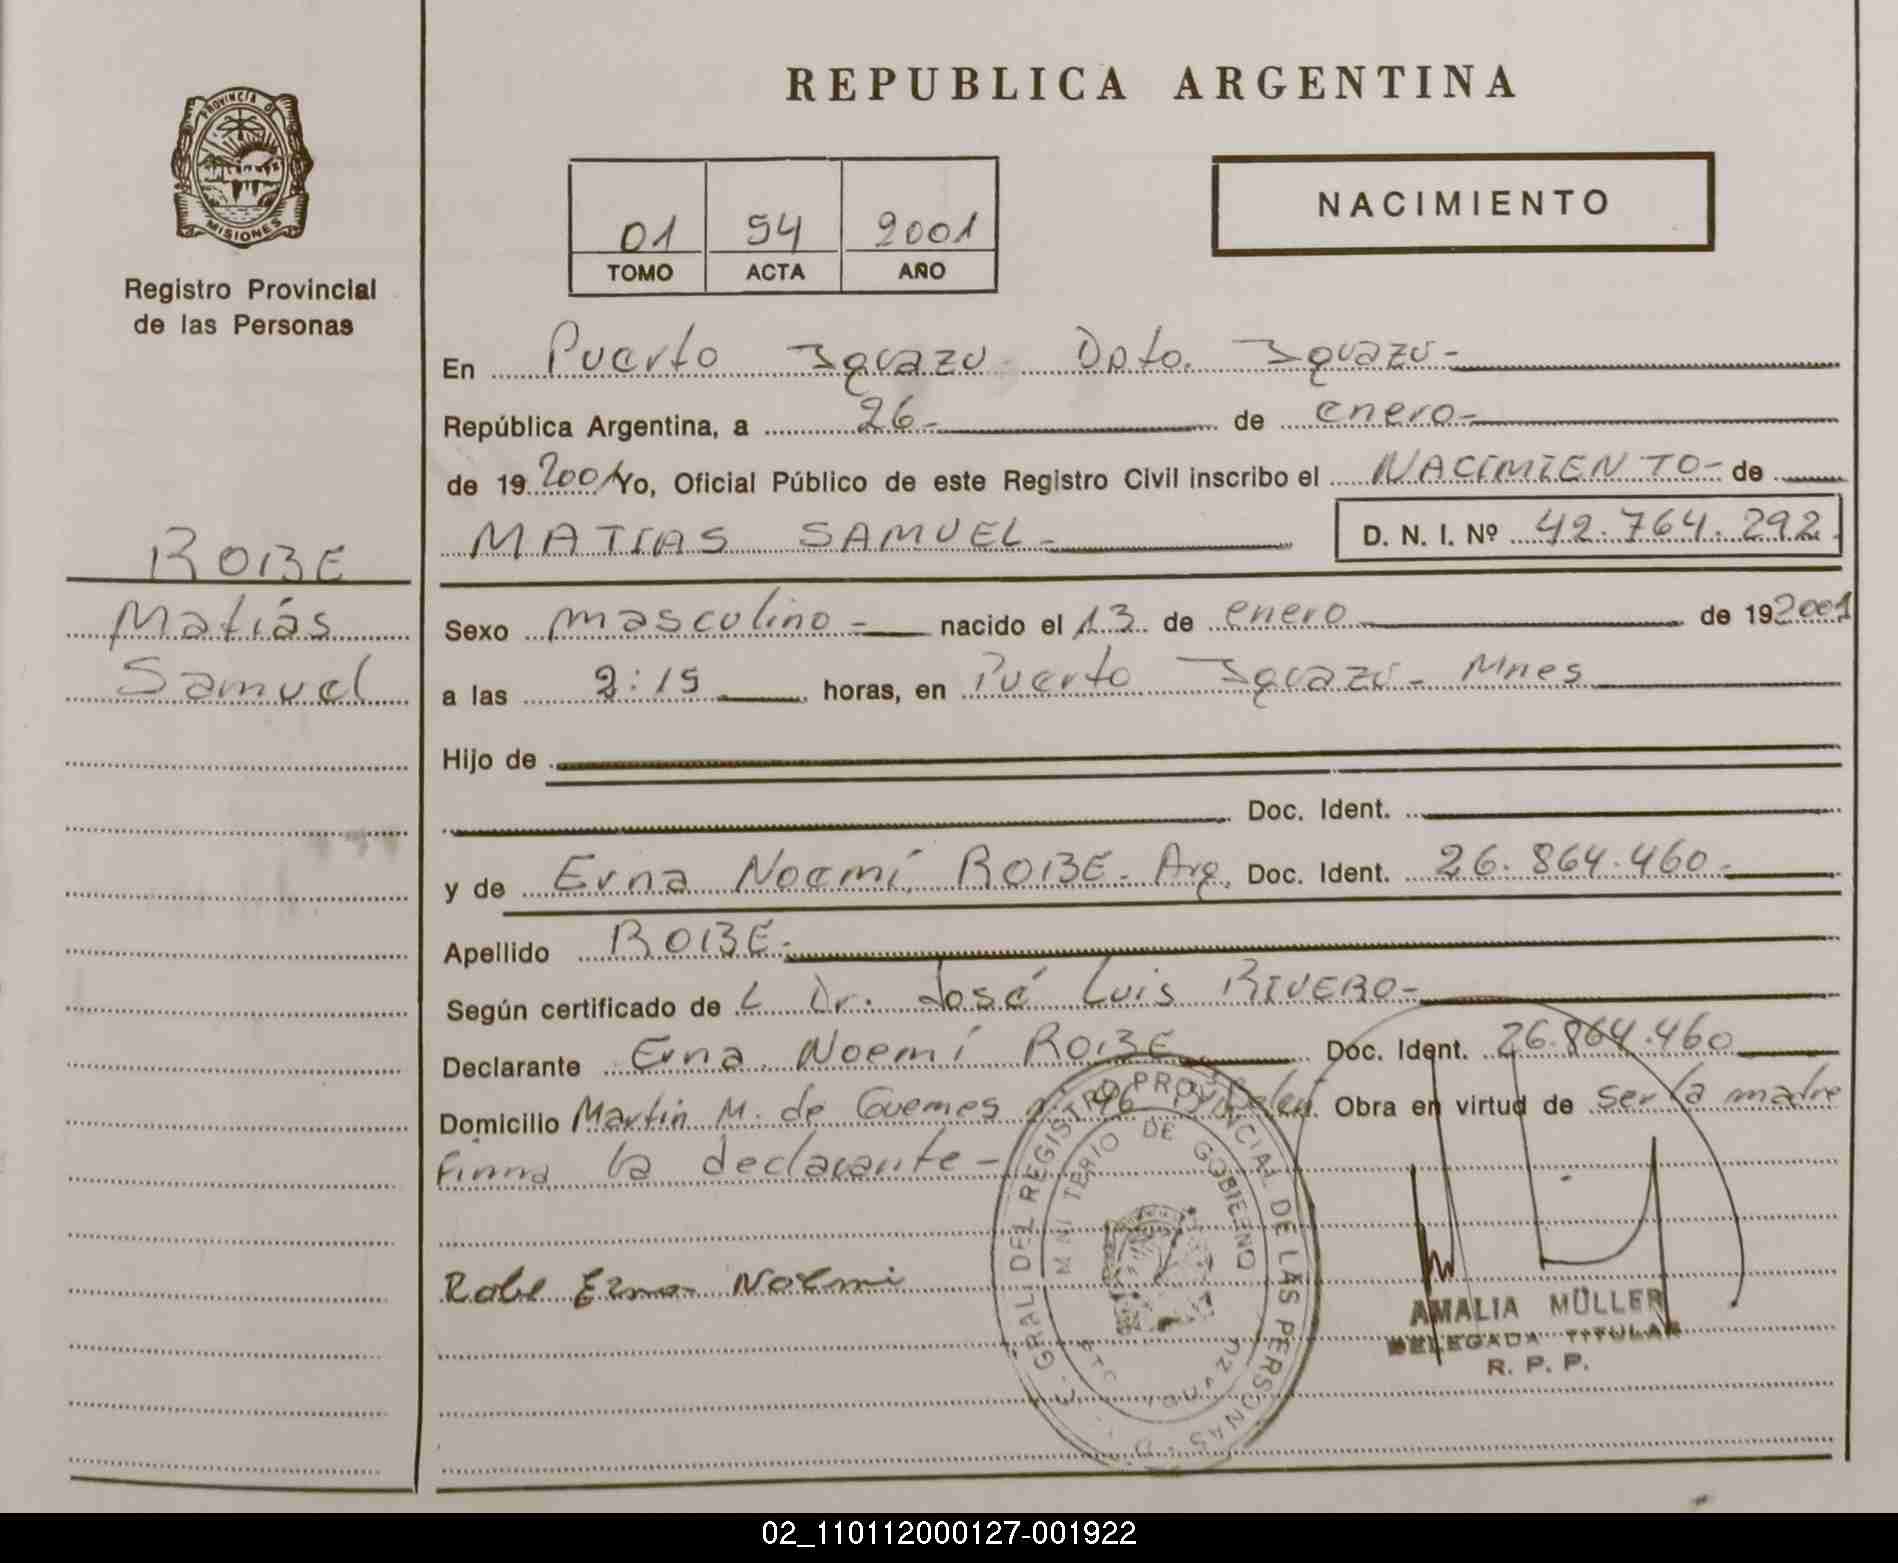 REPUBLICA ARGENTINA
PROVINCIA DE
MISIONES
Registro Provincial
de las Personas
01 54 2001
TOMO ACTA AÑO
NACIMIENTO
En Puerto Iguazú Dpto. Iguazú-
República Argentina, a 26- de enero-
de 19 2001 Yo, Oficial Público de este Registro Civil inscribo el NACIMIENTO- de
MATIAS SAMUEL- D. N. I. Nº 42.764.292.
ROBE
Matiás
Samuel
Sexo masculino- nacido el 13 de enero de 19 2001
a las 2:15 horas, en Puerto Iguazú- Mnes
Hijo de
Doc. Ident.
y de Erna Noemí ROBE- Arg. Doc. Ident. 26.864.460-
Apellido ROBE-
Según certificado de L Dr. José Luis RIVERO-
Declarante Erna Noemí ROBE Doc. Ident. 26.864.460
Domicilio Martin M. de Guemes nº 96 Obra en virtud de ser la madre
firma la declarante-
Robe Erna Noemi
GRAL. DEL REGISTRO PROVINCIAL DE LAS PERSONAS
MINISTERIO DE GOBIERNO
AMALIA MÜLLER
DELEGADA TITULAR
R. P. P.
02_110112000127-001922